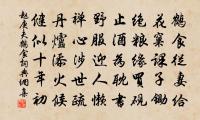 鶴食從妻給
花窠課子鋤
絕糧緣買硯
止酒為耽書
野服迎人懶
禪心涉世疏
丹爐添火候
健似十年初
趙庚夫鶴食詞典網集